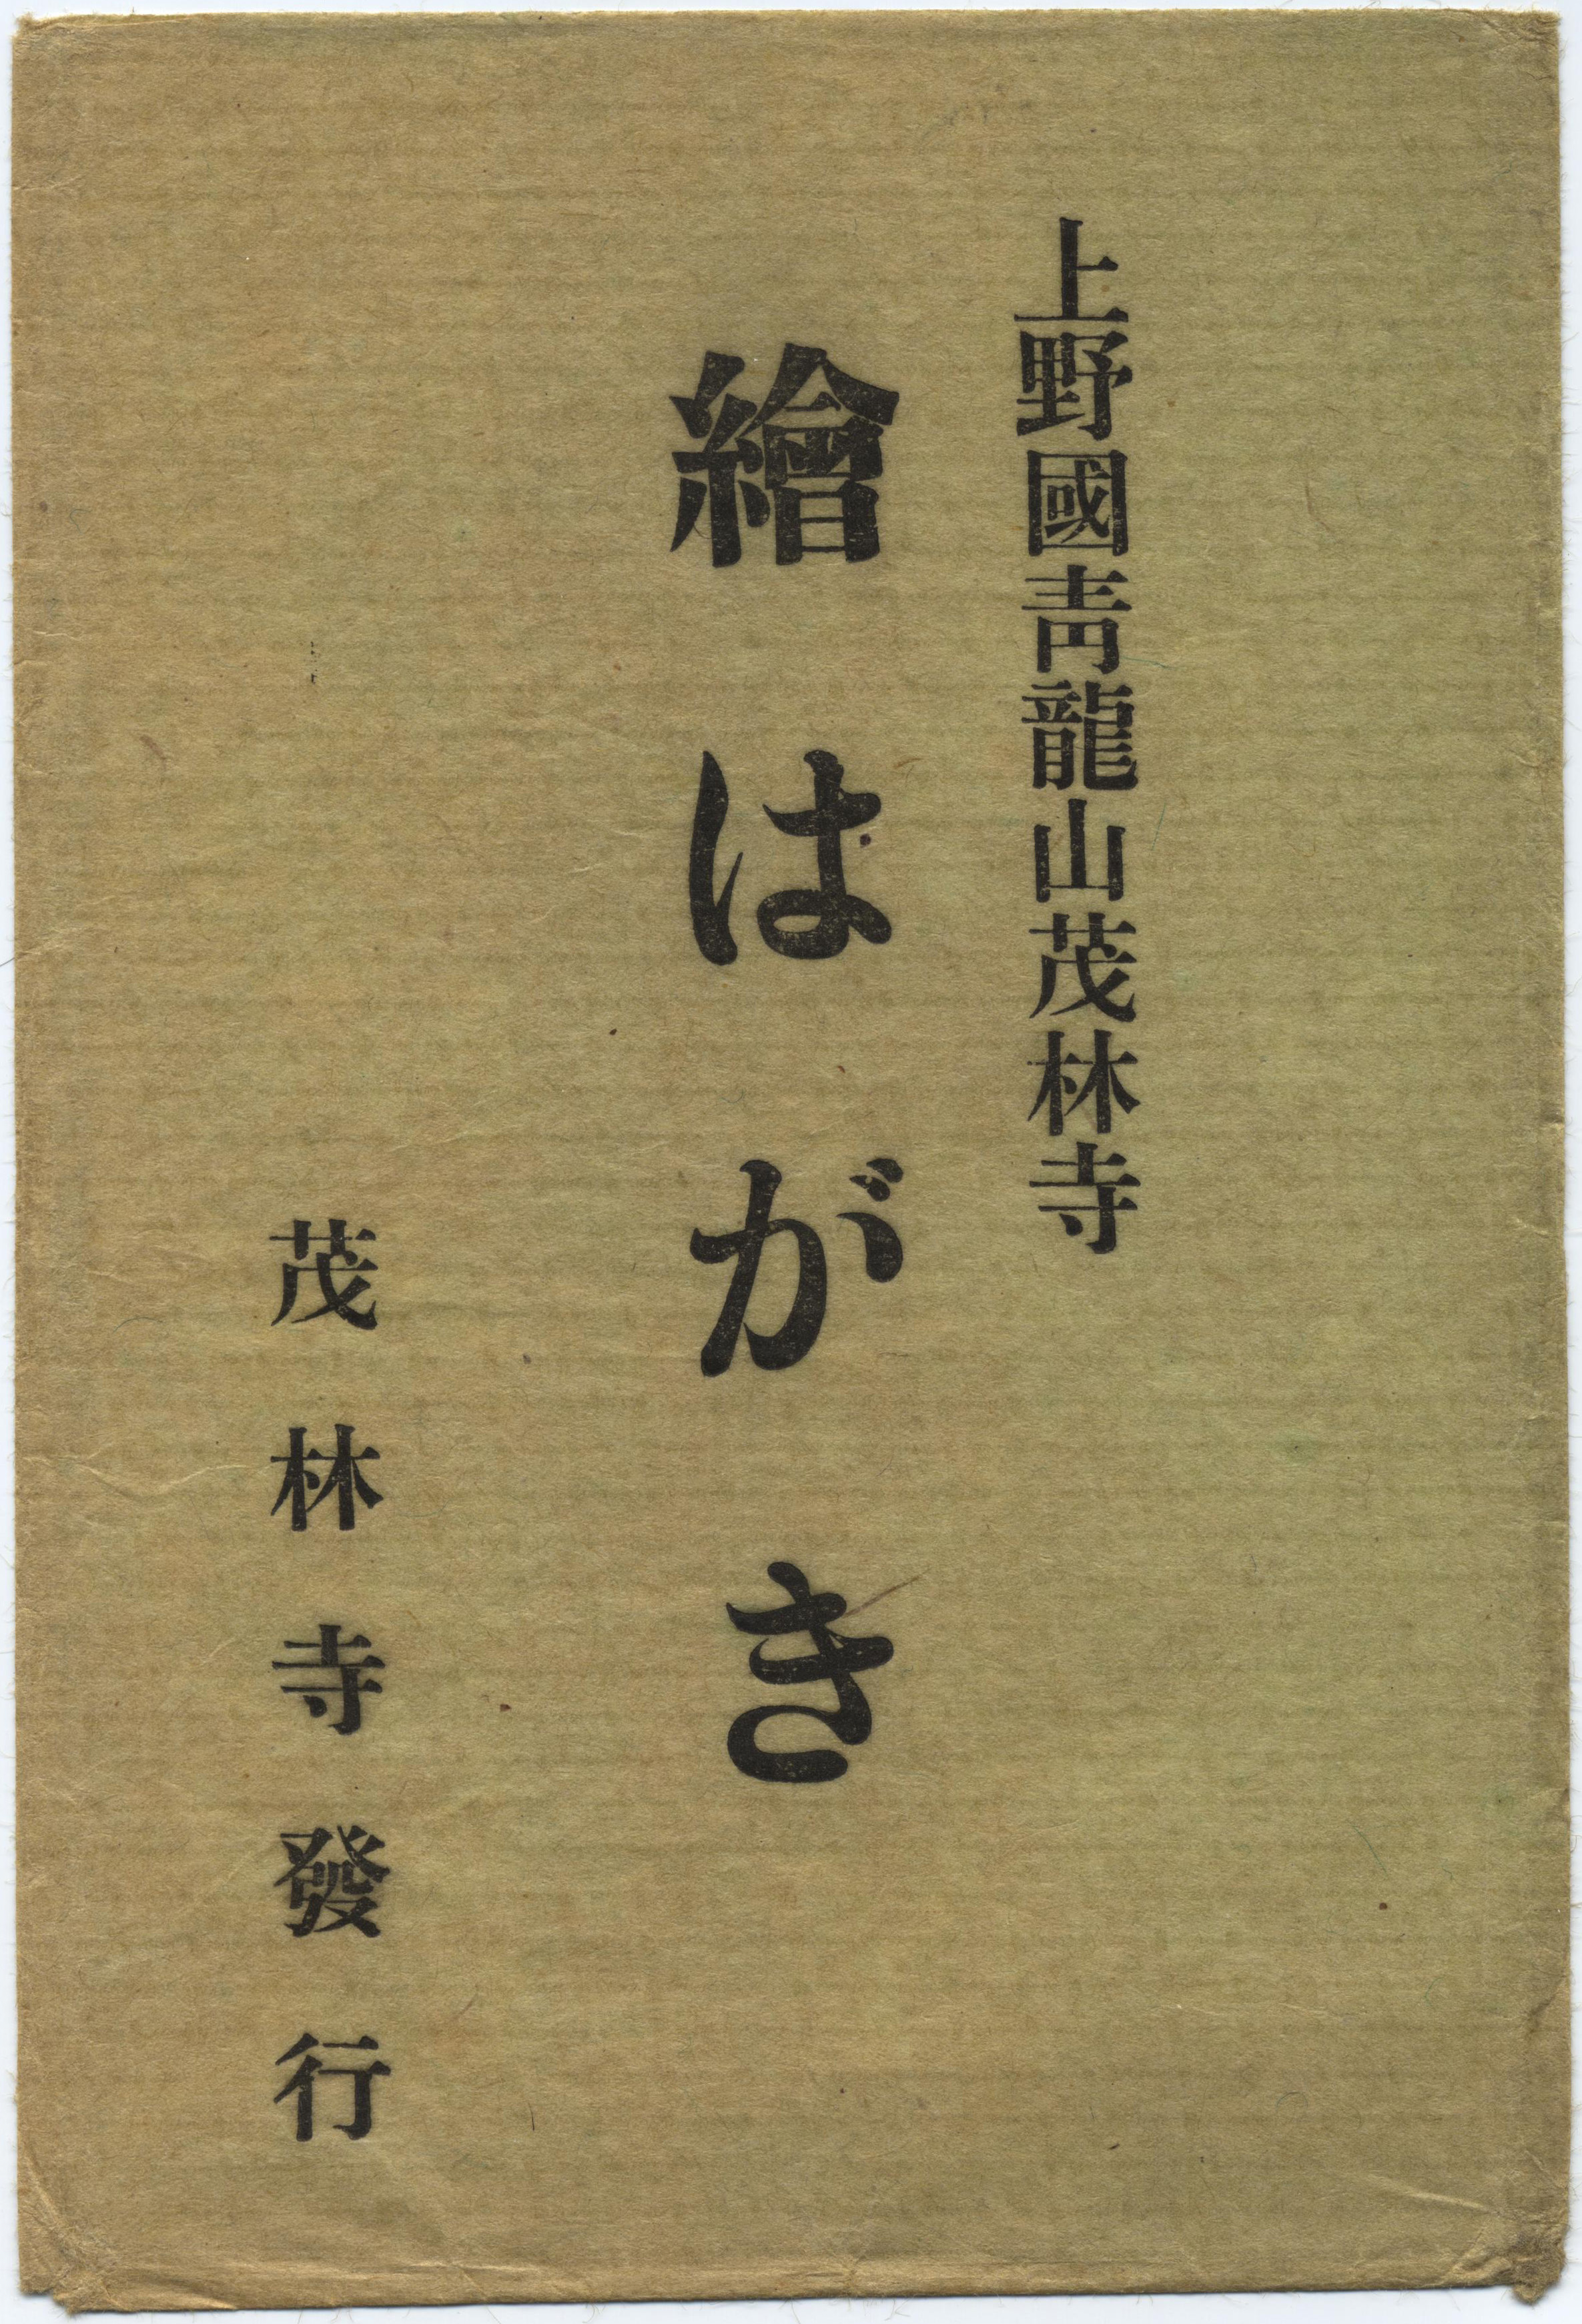 上野國靑龍山茂林寺
繪はがき
茂林寺發行